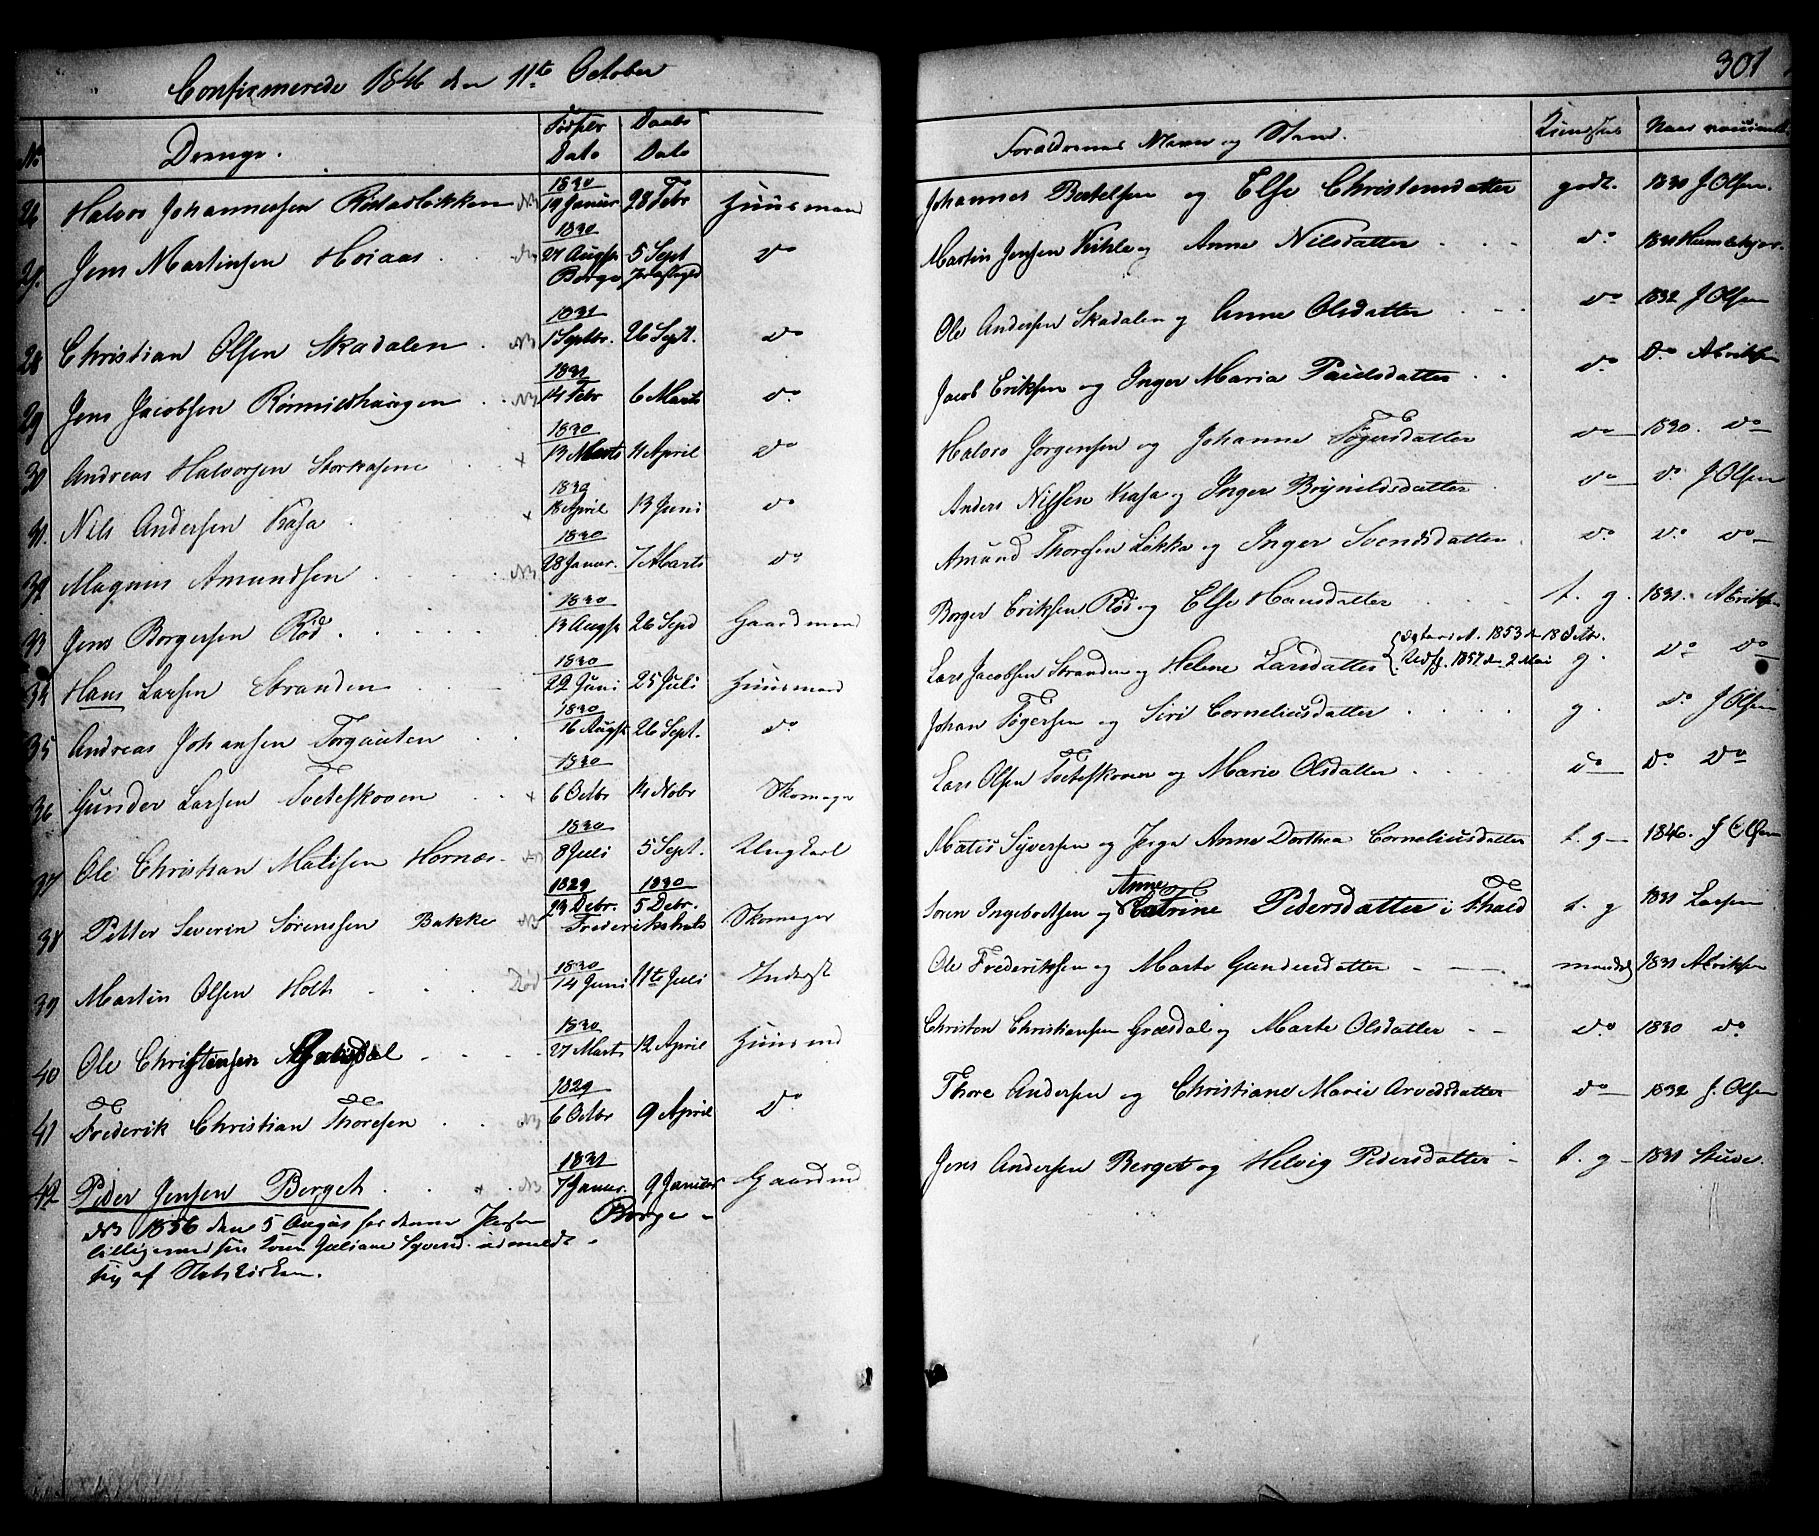 Confirmerede 1846 den 11te October
301
No Drenge. Fødsels Dato Daabs Dato Forældrenes Navne og Stand. Kundskab Naar vaccineret
26 Halvor Johannessen Röstadlökken NB 1830 19 Januar 28 Febr Huusmand Johannes Bertelsen og Else Christensdatter godt. 1830 J Olsen.
27. Jens Martinsen Høiaas NB 1830 27 Augst 5 Sept do Martin Jensen og Anne Nilsdatter do 1831
Borge
28 Christian Olsen Skadalen NB 1831 1 Septbr. 26 Sept. do Ole Andersen Skadalen og Anne Olsdatter do 1832 J Olsen
29 Jens Jacobsen NB 1831 14 Febr 6 Marts do. Jacob Eriksen og Inger Maria Paulsdatter do. Do. A Eriksen
30 Andreas Halvorsen Storkasene x 1830 13 Marts 4 April do Halvor Jørgensen og Johanne Tøgersdatter do 1830. do
31. Nils Andersen Kasa x 1830 18 April 13 Juni do Anders Nilssen Kasa og Inger Brynildsdatter do do. J Olsen
32 Magnus Amundsen NB 1830 28 Januar. 7 Marts do Amund Thoresen Løkka og Inger Svendsdatter. do. do. do
33 Jens Borgersen Röd 1830 13 Augst 26 Sept Gaardmand Borger Eriksen Röd og Else Hansdatter t. g. 1831. A Eriksen
34 Hans Larsen Stranden 1830 22 Juni 25 Juli Huusmand Lars Jacobsen Stranden og Helene Larsdatter { 1853 d 18 Octbr. 1857 d. 2 Mai g. do do
35 Andreas Johansen Torgauten 1830 16 Augst 26 Sept. do Johan Tøgersen og Siri Corneliusdatter g. do. J Olsen
36 Gunder Larsen Tveteskoven x 1830 6 Octbr 14 Nobr Skomager Lars Olsen Tveteskoven og Marie Olsdatter do do. do
37 Ole Christian Matisen Hornæs NB 1830 8 Juli 5 Sept. Ungkarl Matis Syversen og Pige Anne Dorthea Corneliusdatter t. g 1846. J Olsen
38 Petter Severin Sørenssen Bakke NB 1829 23 Debr. 1830 5 Debr. Skomager Soren Ingebretsen og Anne Catrine Pedersdatter i Fhald t. g 1831 Larsen
Frederikshald
39 Martin Olsen Holt Död 1830 14 Juni 11te Juli Inderst Ole Frederiksen og Marte Gundersdatter 1831 A Eriksen
40 Ole Christensen 1830 27 Marts 12 April Huusmd Christen Christiansen Græsdal og Marte Olsdatter do 1830 do.
41 Frederik Christian Thoresen NB 1829 6 Octbr 9 April do Thore Andersen og Christiane Marie Arvedsdatter do 1832 J. Olsen
42 Peder Jensen Berget x NB 1831 7 Januar. 9 Januar Gaardmd Jens Andersen Berget og Helvig Pedersdatter t. g 1831 Stude.
NB 1856 den 5 August har denne Person Borge
tilligemed sin Kone Juliane Syversd. udmeldt
sig af Statskirken.